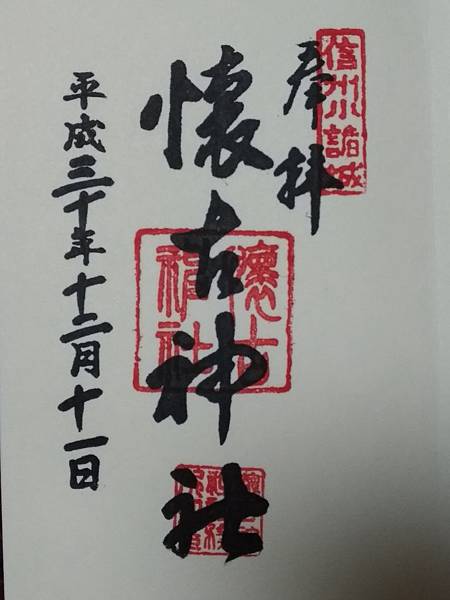 信州小諸城
奉拝
懐古神社
懐古
神社
平成三十年十二月十一日